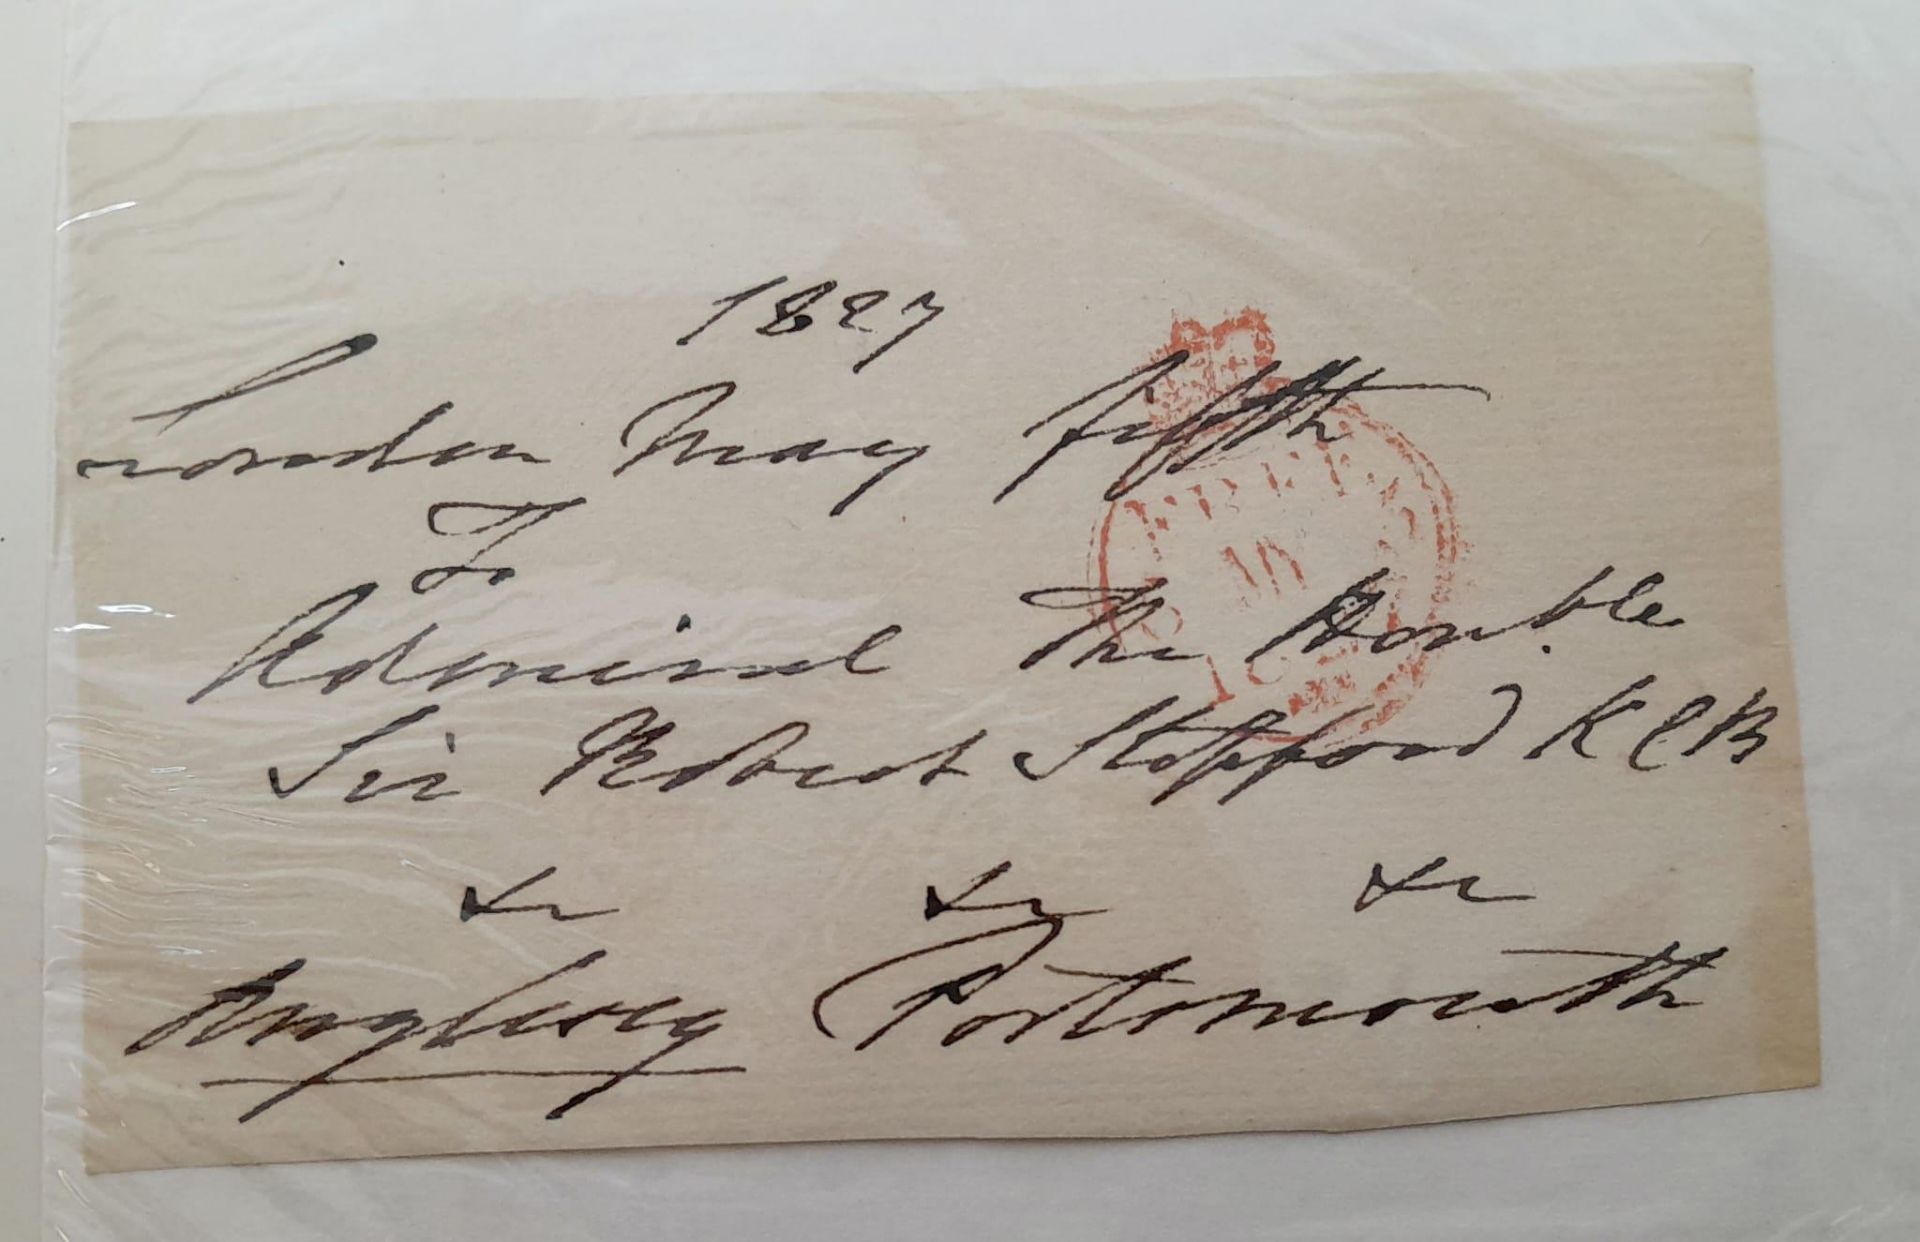 1827
London May fifth
To
Admiral The Honble
Sir Robert Stopford KCB
&c &c &c
Anglesey Portsmouth
FREE